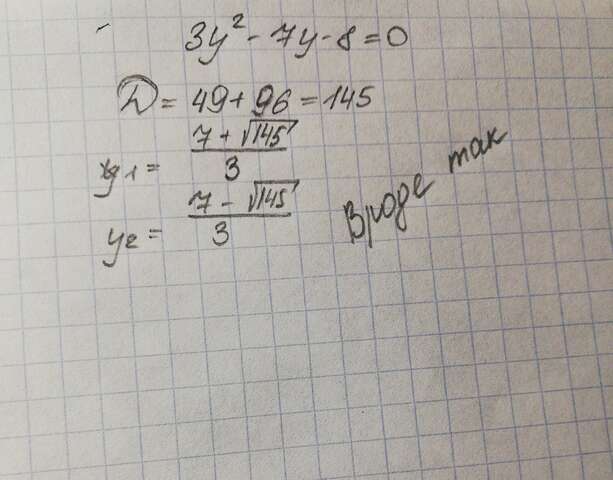 3y² - 7y - 8 = 0
D = 49 + 96 = 145
y1 = (7 + √145) / 3
y2 = (7 - √145) / 3
Вроде так